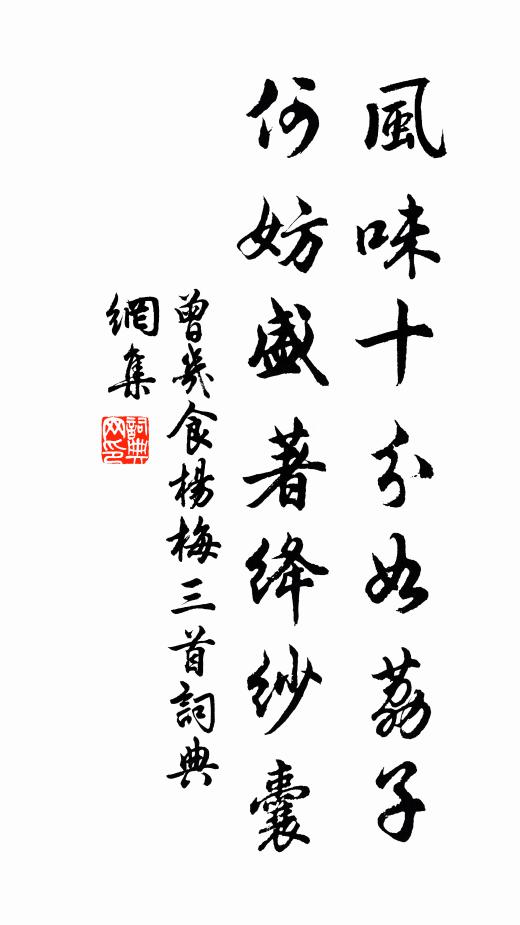 風味十分如荔子
何妨盛著絳紗囊
曾幾食楊梅三首詞典
網集
詞典
网印